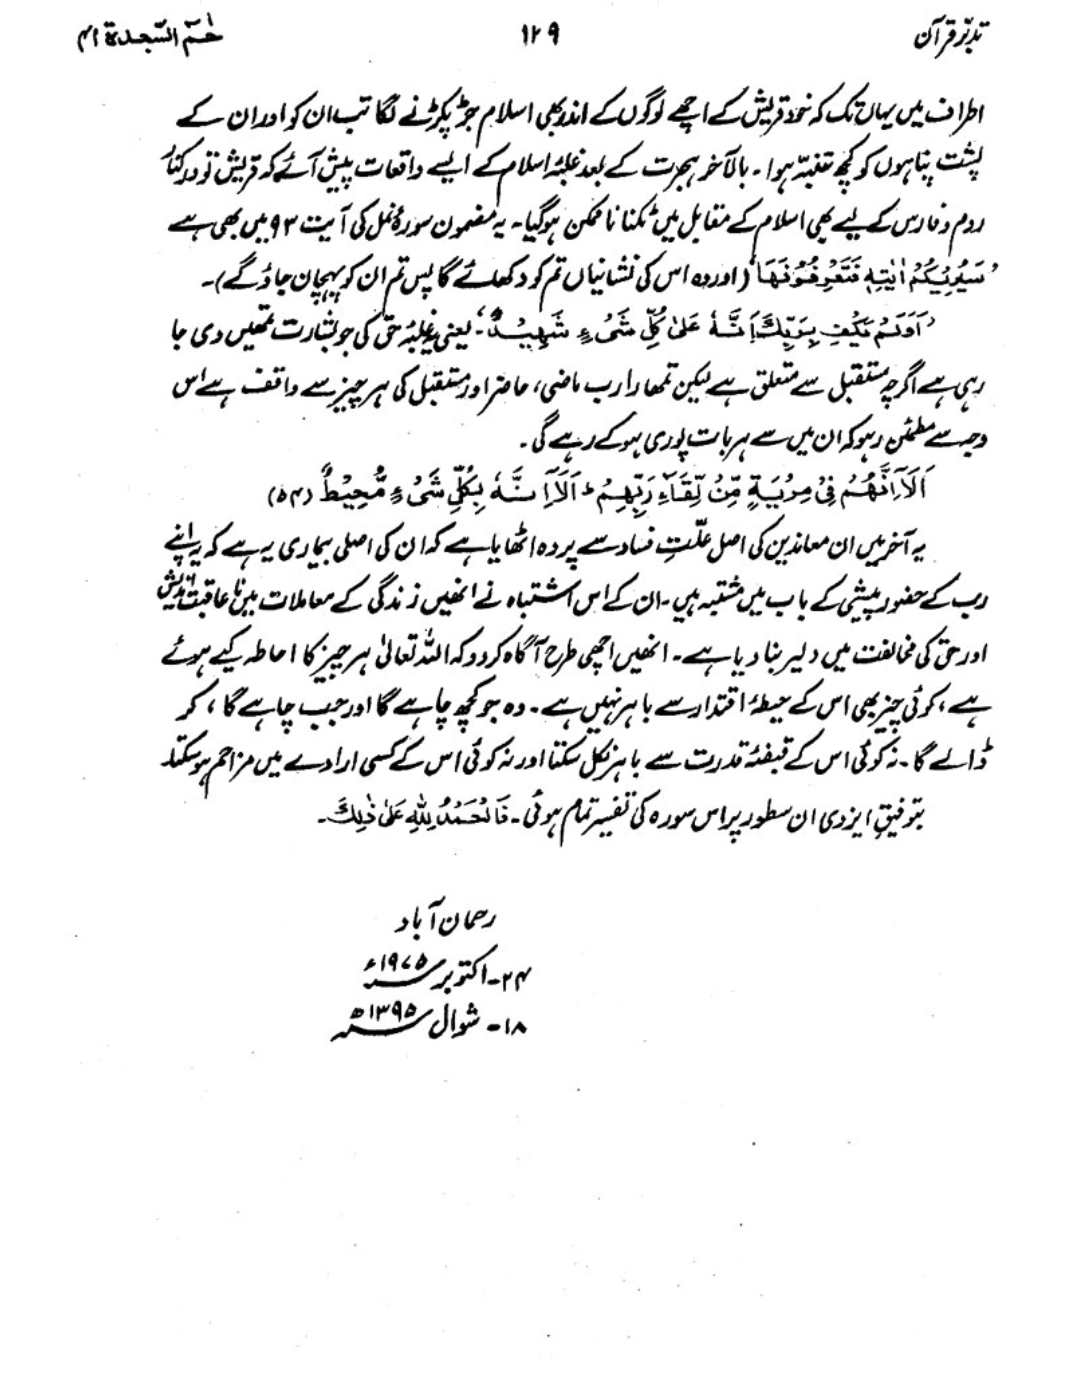 تدبّر قرآن
۱۲۹
حٰمٓ السّجدۃ ۴۱
اطراف میں یہاں تک کہ خود قریش کے اچھے لوگوں کے اندر بھی اسلام جڑ پکڑنے لگا تب ان کو اور ان کے
پشت پناہوں کو کچھ تنبّہ ہوا۔ بالآخر ہجرت کے بعد غلبۂ اسلام کے ایسے واقعات پیش آئے کہ قریش تو درکنار
روم و فارس کے لیے بھی اسلام کے مقابل میں ٹکنا ناممکن ہو گیا۔ یہ مضمون سورۂ نمل کی آیت ۹۳ میں بھی ہے
’سَيُرِيْكُمْ اٰيٰتِهٖ فَتَعْرِفُوْنَهَا‘ (اور وہ اس کی نشانیاں تم کو دکھلائے گا پس تم ان کو پہچان جاؤ گے)۔
’اَوَلَمْ يَكْفِ بِرَبِّكَ اَنَّهٗ عَلٰى كُلِّ شَىْءٍ شَهِيْدٌ‘۔ یعنی غلبۂ حق کی جو بشارت تمھیں دی جا
رہی ہے اگرچہ مستقبل سے متعلق ہے لیکن تمھارا رب ماضی، حاضر اور مستقبل کی ہر چیز سے واقف ہے اس
وجہ سے مطمئن رہو کہ ان میں سے ہر بات پوری ہو کے رہے گی۔
اَلَآ اَنَّهُمْ فِىْ مِرْيَةٍ مِّنْ لِّقَآءِ رَبِّهِمْ ؕ اَلَآ اِنَّهٗ بِكُلِّ شَىْءٍ مُّحِيْطٌ (۵۴)
یہ آخر میں ان معاندین کی اصل علّتِ فساد سے پردہ اٹھایا ہے کہ ان کی اصلی بیماری یہ ہے کہ یہ اپنے
رب کے حضور پیشی کے باب میں مشتبہ ہیں۔ ان کے اس اشتباہ نے انھیں زندگی کے معاملات میں نا عاقبت اندیش
اور حق کی مخالفت میں دلیر بنا دیا ہے۔ انھیں اچھی طرح آگاہ کر دو کہ اللہ تعالیٰ ہر چیز کا احاطہ کیے ہوئے
ہے، کوئی چیز بھی اس کے حیطۂ اقتدار سے باہر نہیں ہے۔ وہ جو کچھ چاہے گا اور جب چاہے گا، کر
ڈالے گا۔ نہ کوئی اس کے قبضۂ قدرت سے باہر نکل سکتا اور نہ کوئی اس کے کسی ارادے میں مزاحم ہو سکتا۔
بتوفیقِ ایزدی ان سطور پر اس سورہ کی تفسیر تمام ہوئی۔ فَالْحَمْدُ لِلّٰهِ عَلٰى ذٰلِكَ۔
رحمان آباد
۲۴۔ اکتوبر ۱۹۷۵ء
۱۸۔ شوال ۱۳۹۵ھ